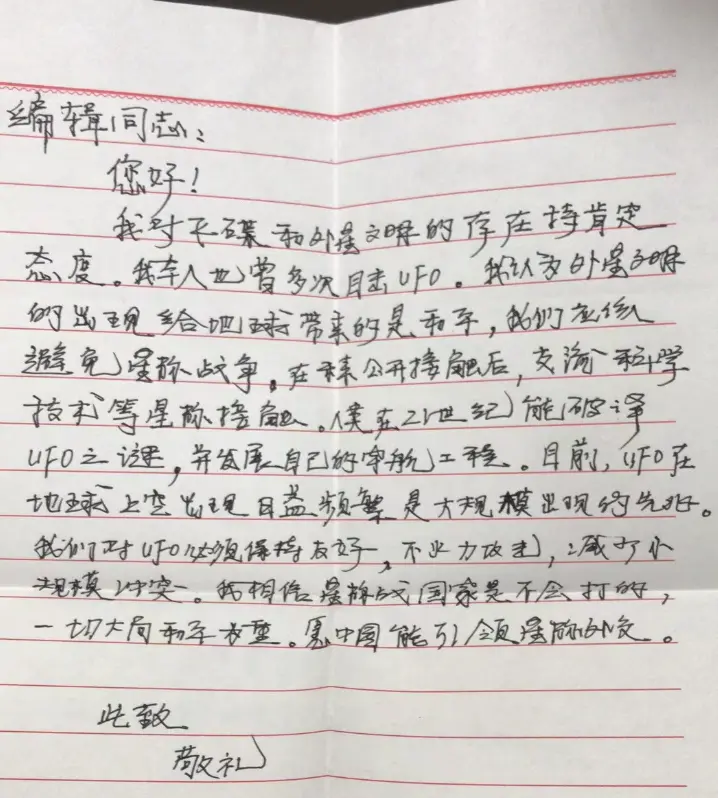 编辑同志:
您好!
我对飞碟和外星文明的存在持肯定
态度。我本人也曾多次目击UFO。我认为外星文明
的出现给地球带来的是和平,我们应该
避免星际战争。在未来公开接触后,交流科学
技术等星际接触。使在21世纪能破译
UFO之谜,并发展自己的宇航工程。目前,UFO在
地球上空出现日益频繁是大规模出现的先兆。
我们对UFO必须保持友好,不以力攻击,减少小
规模冲突。我相信星际战国家是不会打的,
一切大局和平为重。愿中国能引领星际外交。
此致
敬礼